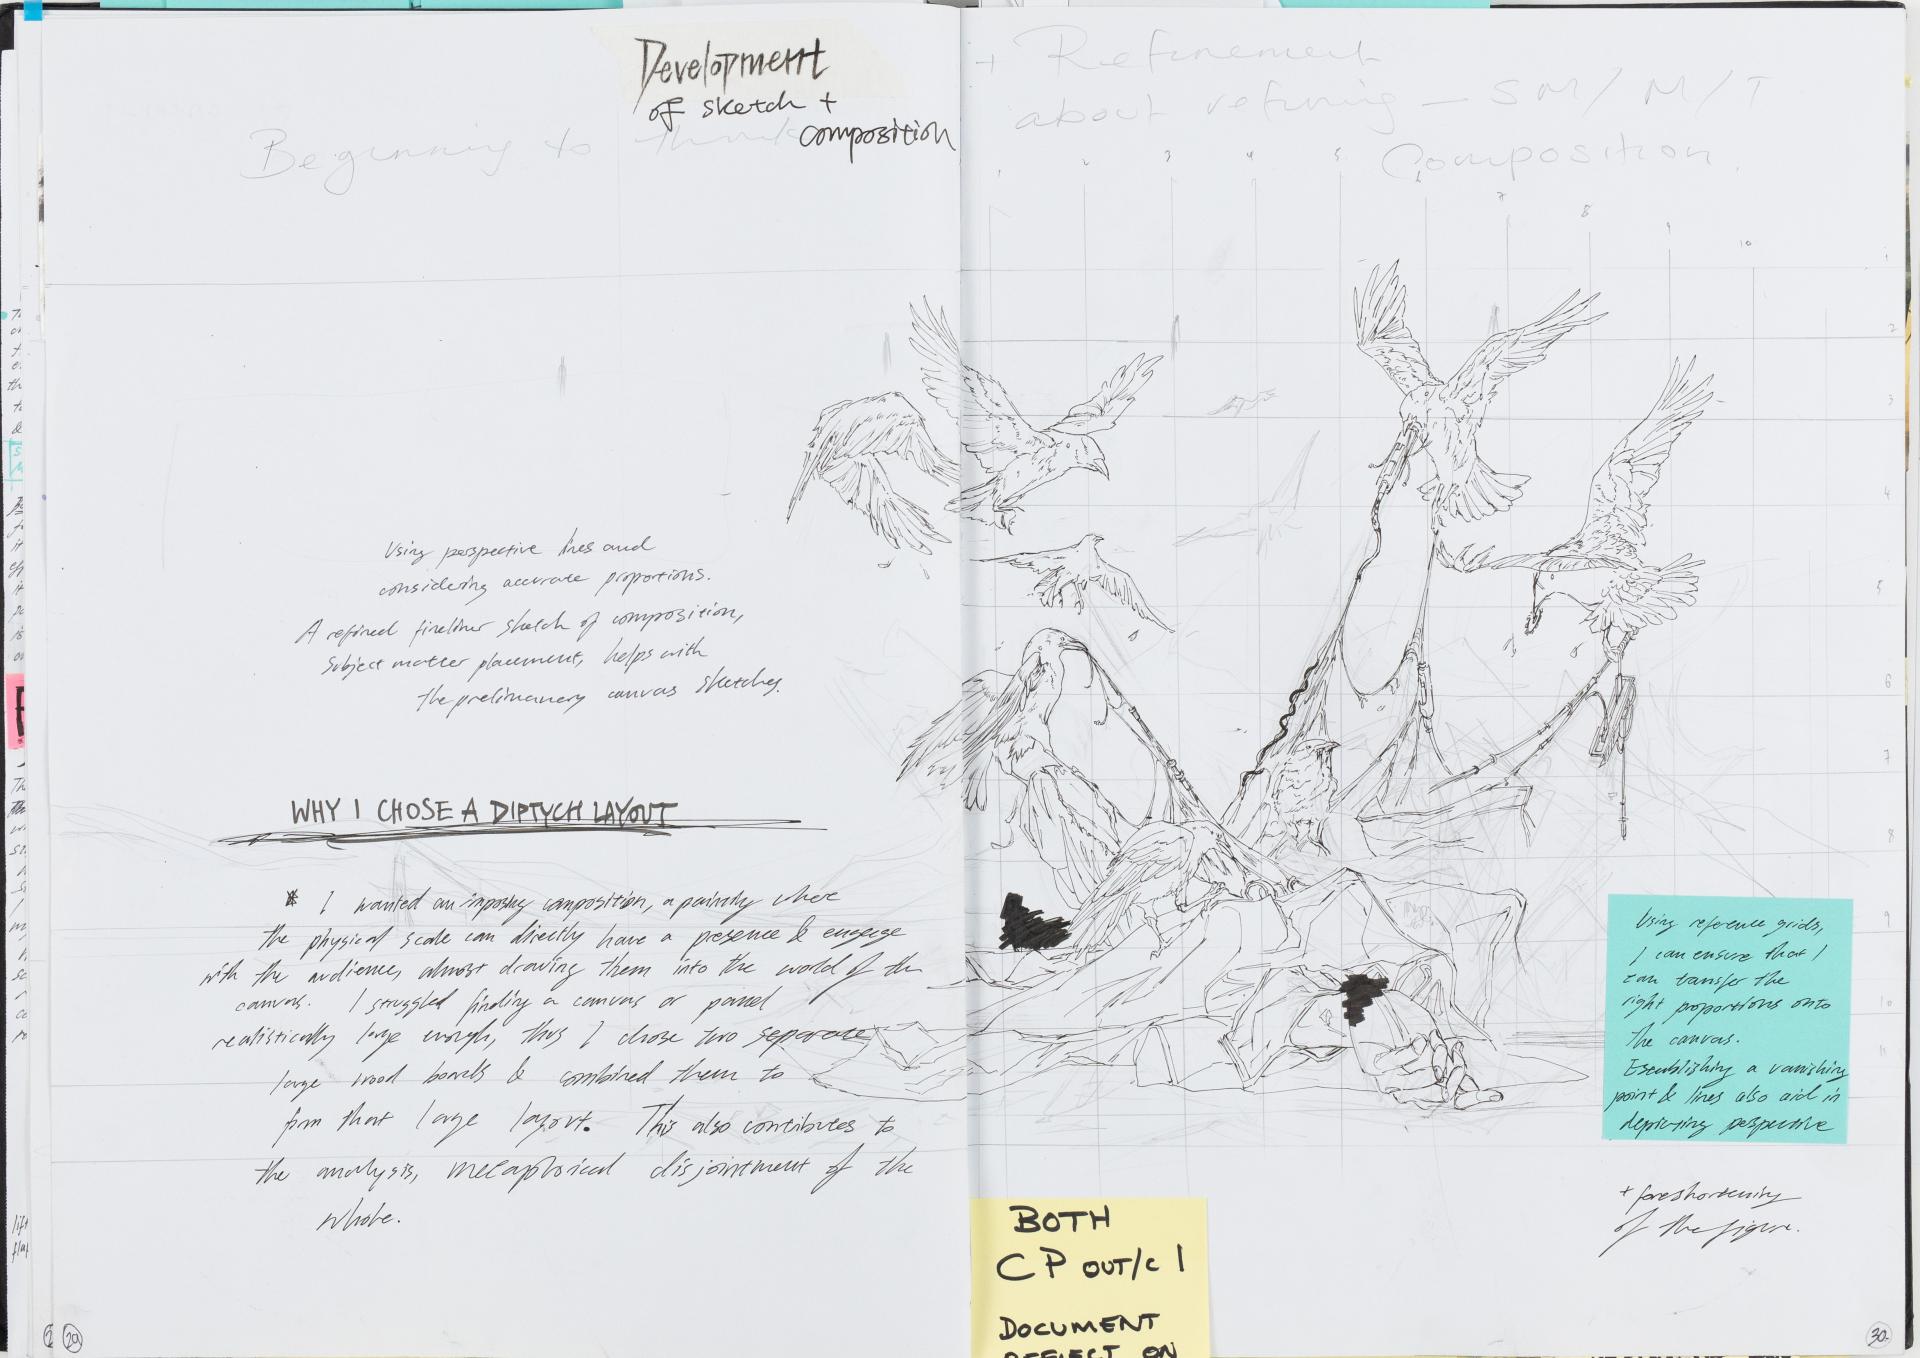 Development
of sketch +
composition
Beginning to think
+ Refinement
about refining — SM / M / T
Composition.
1 2 3 4 5 6 7 8 9 10
1
2
3
4
5
6
7
8
9
10
11
Using perspective lines and
considering accurate proportions.
A refined fineliner sketch of composition,
subject matter placement, helps with
the prelimanery canvas sketches.
WHY I CHOSE A DIPTYCH LAYOUT
* I wanted an imposing composition, a painting where
the physical scale can directly have a presence & engage
with the audience, almost drawing them into the world of the
canvas. I struggled finding a canvas or panel
realistically large enough, thus I chose two separate
large wood boards & combined them to
form that large layout. This also contributes to
the analysis, metaphorical disjointment of the
whole.
Using reference grids,
I can ensure that I
can transfer the
right proportions onto
the canvas.
Establishing a vanishing
point & lines also aid in
depicting perspective
+ foreshortening
of the figure.
BOTH
CP OUT/C 1
DOCUMENT
REFLECT ON
29
30.